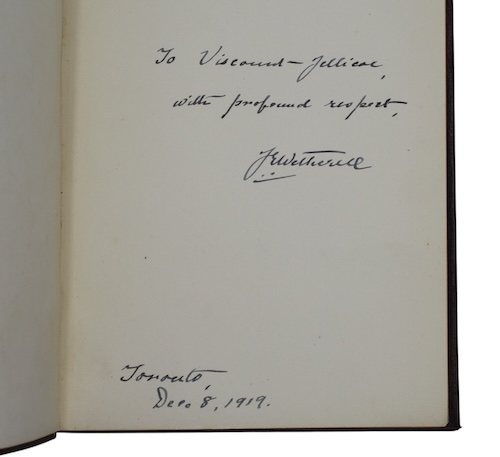 To Viscount Jellicoe,
with profound respect,
J E Wetherell
Toronto,
Dec. 8, 1919.